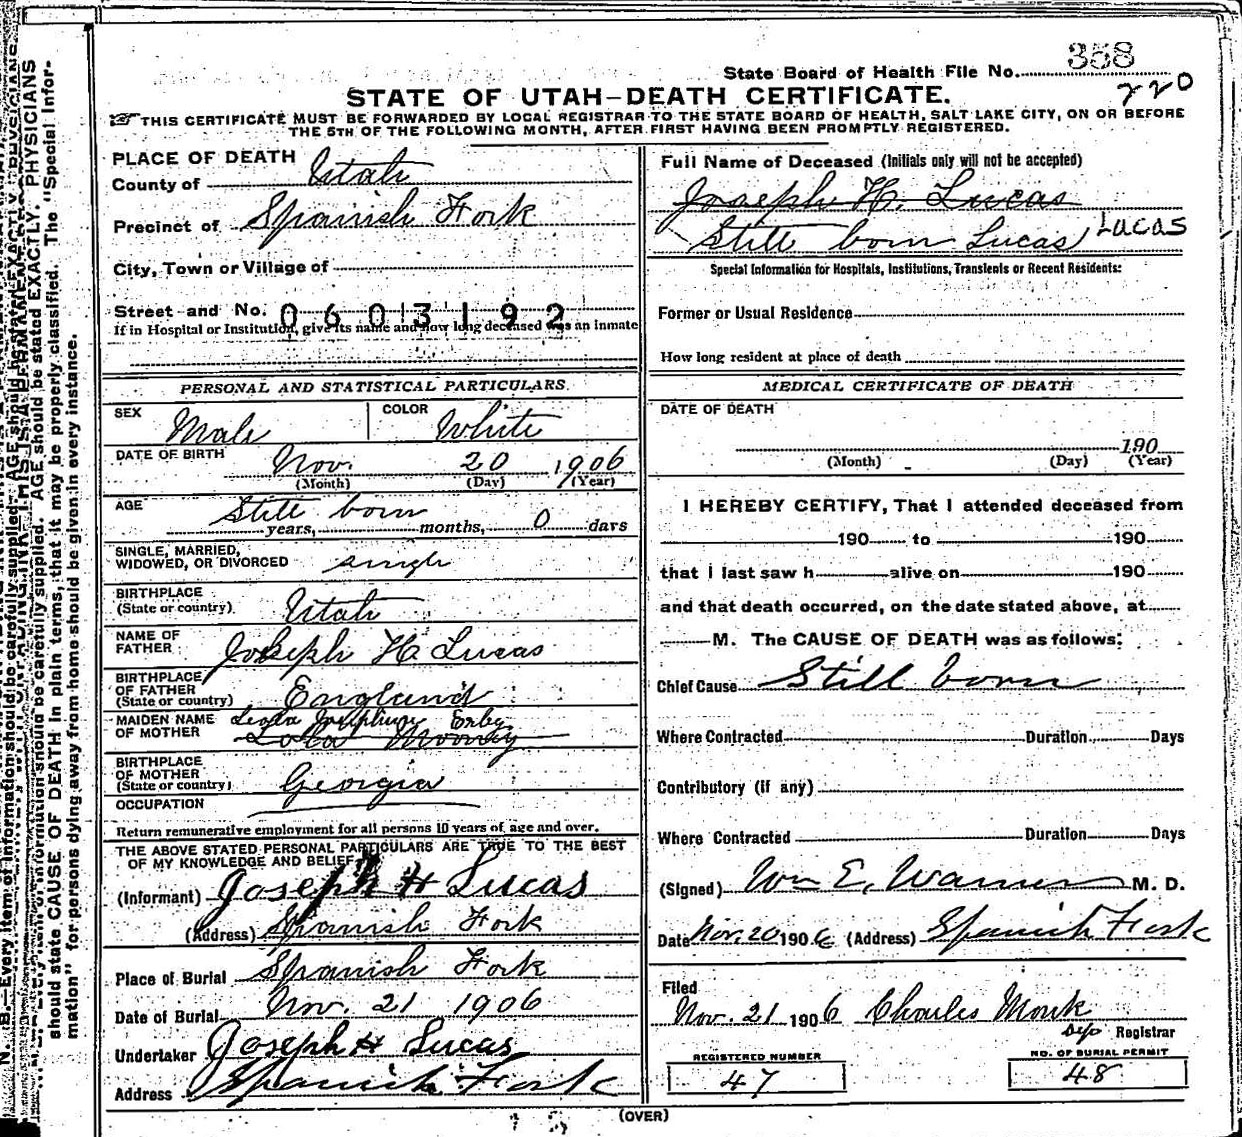 State Board of Health File No. 358
220
STATE OF UTAH—DEATH CERTIFICATE.
THIS CERTIFICATE MUST BE FORWARDED BY LOCAL REGISTRAR TO THE STATE BOARD OF HEALTH, SALT LAKE CITY, ON OR BEFORE
THE 5TH OF THE FOLLOWING MONTH, AFTER FIRST HAVING BEEN PROMPTLY REGISTERED.
PLACE OF DEATH
County of Utah
Precinct of Spanish Fork
City, Town or Village of
Street and No. 0603192
if in Hospital or Institution, give its name and how long deceased was an inmate
PERSONAL AND STATISTICAL PARTICULARS.
SEX Male COLOR White
DATE OF BIRTH Nov. 20 1906
(Month) (Day) (Year)
AGE Still born
years, months, 0 days
SINGLE, MARRIED,
WIDOWED, OR DIVORCED single
BIRTHPLACE
(State or country) Utah
NAME OF
FATHER Joseph H. Lucas
BIRTHPLACE
OF FATHER
(State or country) England
MAIDEN NAME
OF MOTHER
BIRTHPLACE
OF MOTHER
(State or country) Georgia
OCCUPATION
Return remunerative employment for all persons 10 years of age and over.
THE ABOVE STATED PERSONAL PARTICULARS ARE TRUE TO THE BEST
OF MY KNOWLEDGE AND BELIEF
(Informant) Joseph H Lucas
(Address) Spanish Fork
Place of Burial Spanish Fork
Date of Burial Nov. 21 1906
Undertaker Joseph H Lucas
Address Spanish Fork
Full Name of Deceased (Initials only will not be accepted)
Joseph H. Lucas
Still born Lucas Lucas
Special Information for Hospitals, Institutions, Transients or Recent Residents:
Former or Usual Residence
How long resident at place of death
MEDICAL CERTIFICATE OF DEATH
DATE OF DEATH
190
(Month) (Day) (Year)
I HEREBY CERTIFY, That I attended deceased from
190 to 190
that I last saw h alive on 190
and that death occurred, on the date stated above, at
M. The CAUSE OF DEATH was as follows:
Chief Cause Still born
Where Contracted Duration Days
Contributory (if any)
Where Contracted Duration Days
(Signed) Wm E. Warner M. D.
Date Nov. 20 1906 (Address) Spanish Fork
Filed
Nov. 21 1906 Charles Monk
Dep Registrar
REGISTERED NUMBER
47
NO. OF BURIAL PERMIT
48
(OVER)
should state CAUSE OF DEATH in plain terms, that it may be properly classified. The "Special Infor-
mation" for persons dying away from home should be given in every instance.